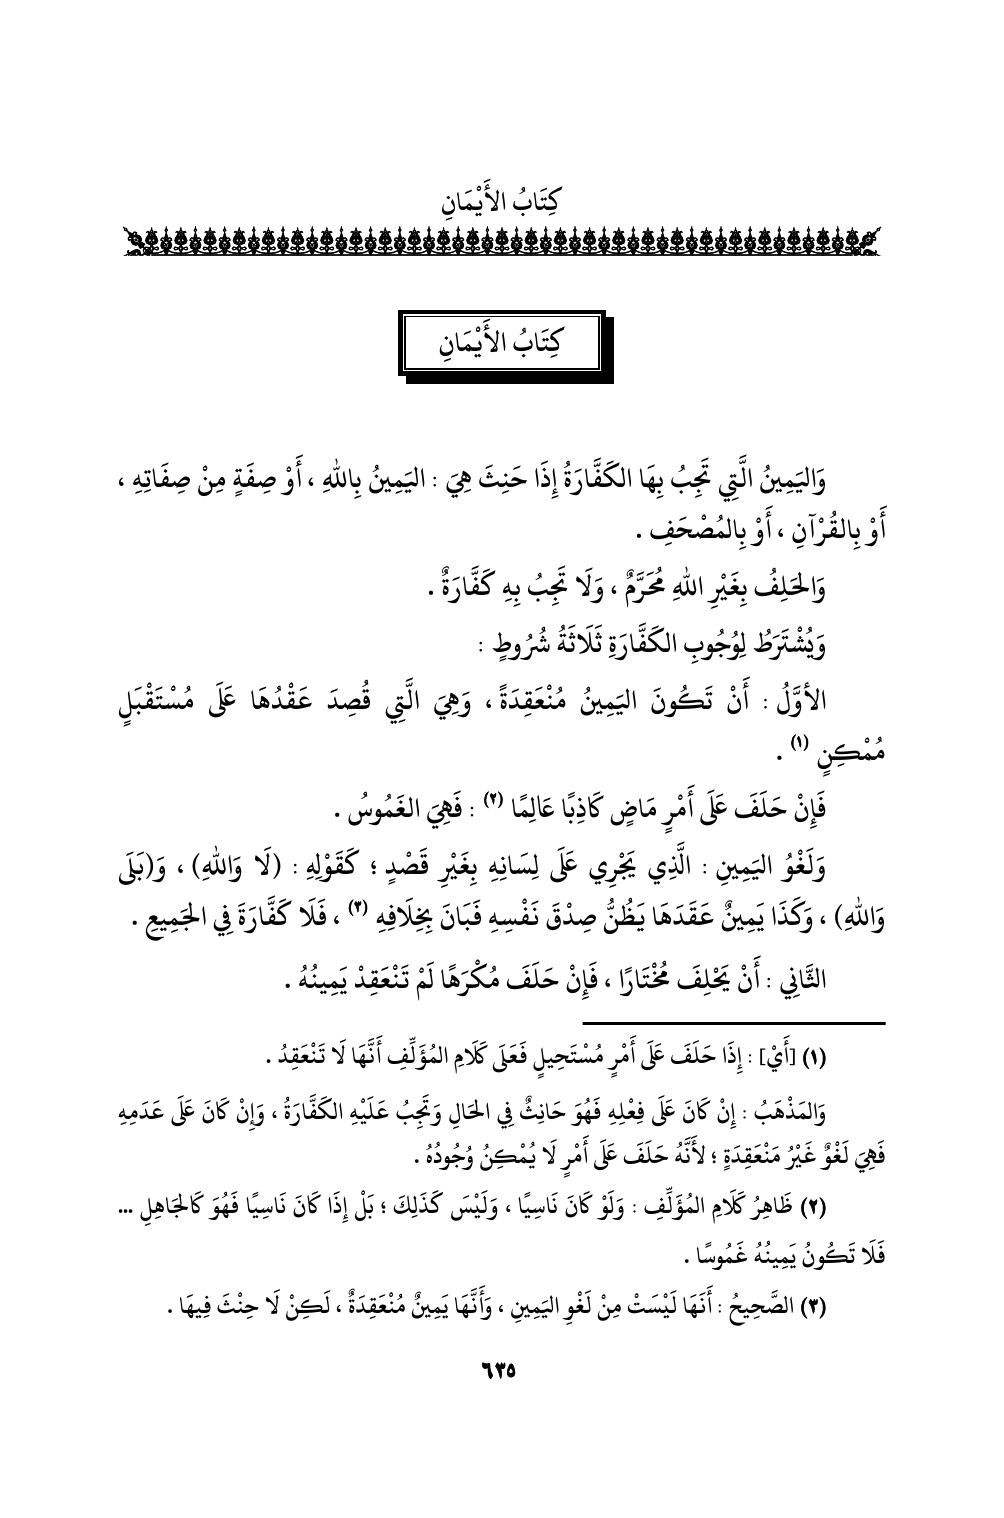 كِتَابُ الأَيْمَانِ
كِتَابُ الأَيْمَانِ
وَاليَمِينُ الَّتِي تَجِبُ بِهَا الكَفَّارَةُ إِذَا حَنِثَ هِيَ : اليَمِينُ بِاللهِ ، أَوْ صِفَةٍ مِنْ صِفَاتِهِ ،
أَوْ بِالقُرْآنِ ، أَوْ بِالمُصْحَفِ .
وَالحَلِفُ بِغَيْرِ اللهِ مُحَرَّمٌ ، وَلَا تَجِبُ بِهِ كَفَّارَةٌ .
وَيُشْتَرَطُ لِوُجُوبِ الكَفَّارَةِ ثَلَاثَةُ شُرُوطٍ :
الأوَّلُ : أَنْ تَكُونَ اليَمِينُ مُنْعَقِدَةً ، وَهِيَ الَّتِي قُصِدَ عَقْدُهَا عَلَى مُسْتَقْبَلٍ
مُمْكِنٍ (١) .
فَإِنْ حَلَفَ عَلَى أَمْرٍ مَاضٍ كَاذِبًا عَالِمًا (٢) : فَهِيَ الغَمُوسُ .
وَلَغْوُ اليَمِينِ : الَّذِي يَجْرِي عَلَى لِسَانِهِ بِغَيْرِ قَصْدٍ ؛ كَقَوْلِهِ : (لَا وَاللهِ) ، وَ(بَلَى
وَاللهِ) ، وَكَذَا يَمِينٌ عَقَدَهَا يَظُنُّ صِدْقَ نَفْسِهِ فَبَانَ بِخِلَافِهِ (٣) ، فَلَا كَفَّارَةَ فِي الجَمِيعِ .
الثَّانِي : أَنْ يَحْلِفَ مُخْتَارًا ، فَإِنْ حَلَفَ مُكْرَهًا لَمْ تَنْعَقِدْ يَمِينُهُ .
(١) [أَيْ] : إِذَا حَلَفَ عَلَى أَمْرٍ مُسْتَحِيلٍ فَعَلَى كَلَامِ المُؤَلِّفِ أَنَّهَا لَا تَنْعَقِدُ .
وَالمَذْهَبُ : إِنْ كَانَ عَلَى فِعْلِهِ فَهُوَ حَانِثٌ فِي الحَالِ وَتَجِبُ عَلَيْهِ الكَفَّارَةُ ، وَإِنْ كَانَ عَلَى عَدَمِهِ
فَهِيَ لَغْوٌ غَيْرُ مَنْعَقِدَةٍ ؛ لأَنَّهُ حَلَفَ عَلَى أَمْرٍ لَا يُمْكِنُ وُجُودُهُ .
(٢) ظَاهِرُ كَلَامِ المُؤَلِّفِ : وَلَوْ كَانَ نَاسِيًا ، وَلَيْسَ كَذَلِكَ ؛ بَلْ إِذَا كَانَ نَاسِيًا فَهُوَ كَالجَاهِلِ ...
فَلَا تَكُونُ يَمِينُهُ غَمُوسًا .
(٣) الصَّحِيحُ : أَنَهَا لَيْسَتْ مِنْ لَغْوِ اليَمِينِ ، وَأَنَّهَا يَمِينٌ مُنْعَقِدَةٌ ، لَكِنْ لَا حِنْثَ فِيهَا .
٦٣٥